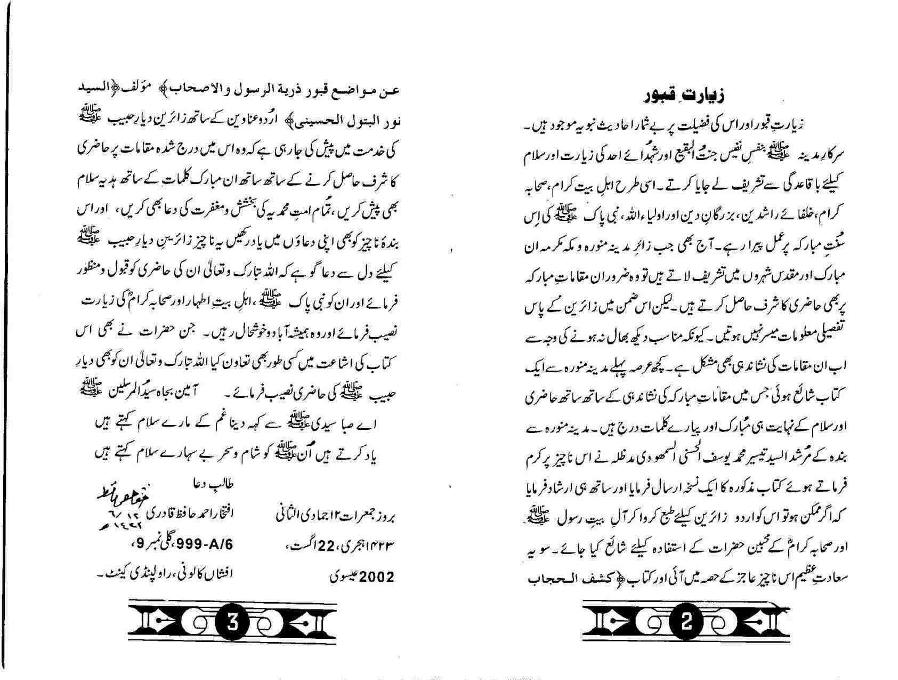 زیارتِ قبور
زیارتِ قبور اور اس کی فضیلت پر بے شمار احادیث نبویہ موجود ہیں۔
سرکارِ مدینہ ﷺ بنفسِ نفیس جنت البقیع اور شہدائے احد کی زیارت اور سلام
کیلئے باقاعدگی سے تشریف لے جایا کرتے۔ اسی طرح اہلِ بیت کرام، صحابہ
کرام، خلفائے راشدین، بزرگانِ دین اور اولیاء اللہ، نبی پاک ﷺ کی اِس
سنّتِ مبارکہ پر عمل پیرا رہے۔ آج بھی جب زائر مدینہ منورہ و مکہ مکرمہ ان
مبارک اور مقدس شہروں میں تشریف لاتے ہیں تو وہ ضرور ان مقاماتِ مبارکہ
پر بھی حاضری کا شرف حاصل کرتے ہیں۔ لیکن اس ضمن میں زائرین کے پاس
تفصیلی معلومات میسر نہیں ہوتیں۔ کیونکہ مناسب دیکھ بھال نہ ہونے کی وجہ سے
اب ان مقامات کی نشاندہی بھی مشکل ہے۔ کچھ عرصہ پہلے مدینہ منورہ سے ایک
کتاب شائع ہوئی جس میں مقاماتِ مبارکہ کی نشاندہی کے ساتھ ساتھ حاضری
اور سلام کے نہایت ہی مبارک اور پیارے کلمات درج ہیں۔ مدینہ منورہ سے
بندہ کے مرشد السید تیسیر محمد یوسف الحسنی السمھودی مدظلہ نے اس ناچیز پر کرم
فرماتے ہوئے کتاب مذکورہ کا ایک نسخہ ارسال فرمایا اور ساتھ ہی ارشاد فرمایا
کہ اگر ممکن ہو تو اس کو اردو زائرین کیلئے طبع کروا کر آلِ بیتِ رسول ﷺ
اور صحابہ کرامؓ کے محبین حضرات کے استفادہ کیلئے شائع کیا جائے۔ سو یہ
سعادتِ عظیم اس ناچیز عاجز کے حصہ میں آئی اور کتاب ﴿کشف الحجاب
2
عن مواضع قبور ذریة الرسول والاصحاب﴾ مؤلف ﴿السید
نور البتول الحسینی﴾ اُردو عناوین کے ساتھ زائرین دیارِ حبیب ﷺ
کی خدمت میں پیش کی جا رہی ہے کہ وہ اس میں درج شدہ مقامات پر حاضری
کا شرف حاصل کرنے کے ساتھ ساتھ ان مبارک کلمات کے ساتھ ہدیہ سلام
بھی پیش کریں، تمام امتِ محمدیہ کی بخشش و مغفرت کی دعا بھی کریں، اور اس
بندۂ ناچیز کو بھی اپنی دعاؤں میں یاد رکھیں یہ ناچیز زائرینِ دیارِ حبیب ﷺ
کیلئے دل سے دعا گو ہے کہ اللہ تبارک و تعالیٰ ان کی حاضری کو قبول و منظور
فرمائے اور ان کو نبی پاک ﷺ، اہلِ بیتِ اطہار اور صحابہ کرامؓ کی زیارت
نصیب فرمائے اور وہ ہمیشہ آباد و خوشحال رہیں۔ جن حضرات نے بھی اس
کتاب کی اشاعت میں کسی طور بھی تعاون کیا اللہ تبارک و تعالیٰ ان کو بھی دیارِ
حبیب ﷺ کی حاضری نصیب فرمائے۔ آمین بجاہ سید المرسلین ﷺ
اے صبا سیدی ﷺ سے کہہ دینا غم کے مارے سلام کہتے ہیں
یاد کرتے ہیں اُن ﷺ کو شام و سحر بے سہارے سلام کہتے ہیں
طالبِ دعا
بروز جمعرات ۱۲ جمادی الثانی افتخار احمد حافظ قادری
۱۴۲۳ ہجری، 22 اگست، 999-A/6، گلی نمبر 9،
2002 عیسوی افشاں کالونی، راولپنڈی کینٹ۔
3